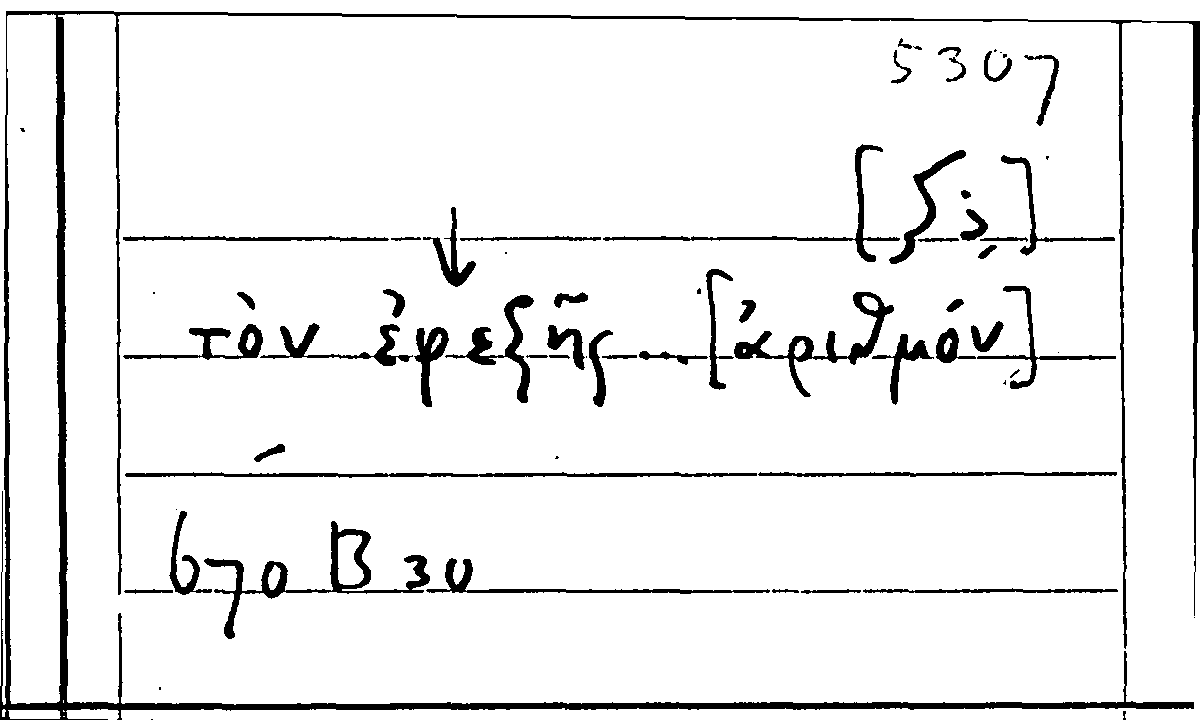 5307
τὸν ἐφεξῆς ... [ἀριθμόν]
670 B 30